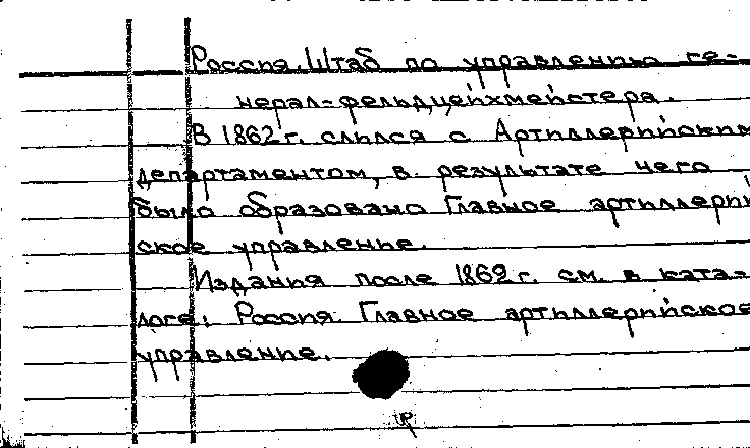 Россия. Штаб по управлению ге-
нерал-фельдцейхмейстера.
В 1862 г. слился с Артиллерийским
департаментом, в результате чего
было образовано Главное артиллерий
ское управление.
Издания после 1862 г. см. в ката-
логе: Россия. Главное артиллерийское
управление.